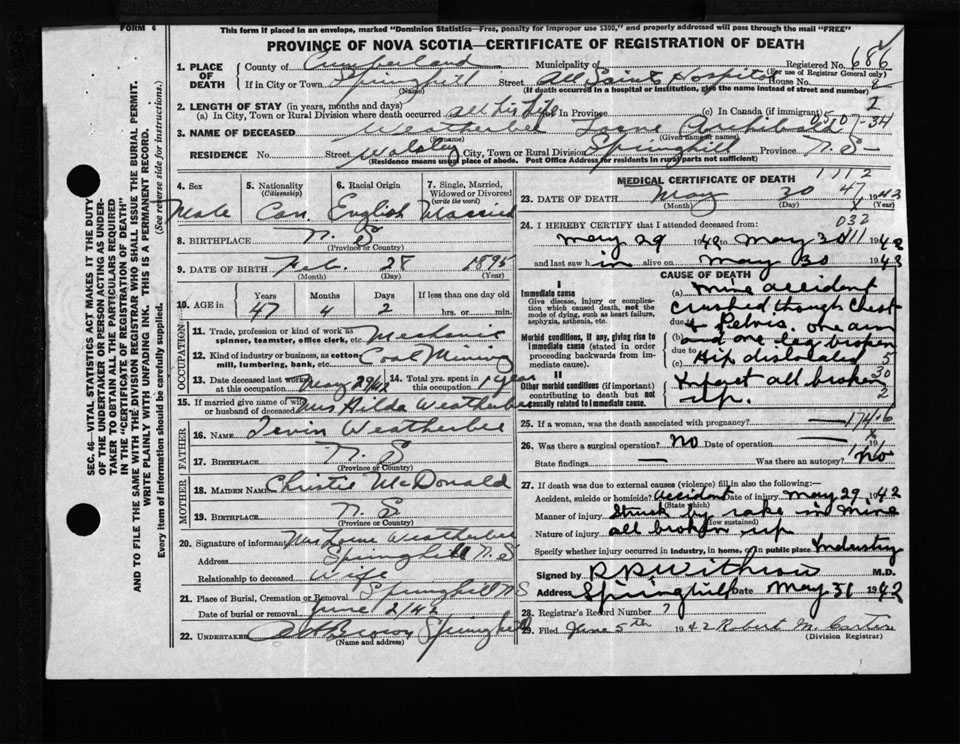 FORM 6
This form if placed in an envelope, marked "Dominion Statistics—Free, penalty for improper use $300," and properly addressed will pass through the mail "FREE"
PROVINCE OF NOVA SCOTIA—CERTIFICATE OF REGISTRATION OF DEATH
1. PLACE OF DEATH County of Cumberland Municipality of Registered No. 686
(For use of Registrar General only)
If in City or Town Springhill Street All Saints Hospital House No.
(Name) (If death occurred in a hospital or institution, give the name instead of street and number)
2. LENGTH OF STAY (in years, months and days)
(a) In City, Town or Rural Division where death occurred all his life In Province (c) In Canada (if immigrant)
3. NAME OF DECEASED Weatherbee Lorne Archibald
(Given name or names)
RESIDENCE No. Street City, Town or Rural Division Springhill Province N.S—
(Residence means usual place of abode. Post Office Address for residents in rural parts not sufficient)
4. Sex 5. Nationality (Citizenship) 6. Racial Origin 7. Single, Married, Widowed or Divorced (write the word)
Male Can. English Married
8. BIRTHPLACE N. S
(Province or Country)
9. DATE OF BIRTH Feb. 28 1895
(Month) (Day) (Year)
10. AGE in Years Months Days If less than one day old
47 4 2 hrs. or min.
OCCUPATION
11. Trade, profession or kind of work as spinner, teamster, office clerk, etc. Mechanic
12. Kind of industry or business, as cotton mill, lumbering, bank, etc. Coal Mining
13. Date deceased last worked at this occupation May 29/42 14. Total yrs. spent in this occupation 1 year
15. If married give name of wife or husband of deceased Mrs Hilda Weatherbee
FATHER
16. NAME Weatherbee
17. BIRTHPLACE N. S
(Province or Country)
MOTHER
18. MAIDEN NAME Christie McDonald
19. BIRTHPLACE N. S
(Province or Country)
20. Signature of informant Mrs Lorne Weatherbee
Address Springhill N. S
Relationship to deceased Wife
21. Place of Burial, Cremation or Removal Springhill NS
Date of burial or removal June 2/42
22. UNDERTAKER Brown Springhill
(Name and address)
MEDICAL CERTIFICATE OF DEATH
23. DATE OF DEATH May 30
(Month) (Day) (Year)
24. I HEREBY CERTIFY that I attended deceased from:
May 29 1942 to May 30 1942
and last saw h im alive on May 30 1942
CAUSE OF DEATH
I
Immediate cause
Give disease, injury or complication which caused death, not the mode of dying, such as heart failure, asphyxia, asthenia, etc.
(a) Mine accident
crushed though Chest
due to + Pelvis. one arm
Morbid conditions, if any, giving rise to immediate cause (stated in order proceeding backwards from immediate cause).
(b) and one leg broken
due to
(c) Hip dislocated
II
Other morbid conditions (if important) contributing to death but not causally related to immediate cause.
all broken
up.
25. If a woman, was the death associated with pregnancy? —
26. Was there a surgical operation? No Date of operation —
State findings — Was there an autopsy? No
27. If death was due to external causes (violence) fill in also the following:—
Accident, suicide or homicide? accident Date of injury May 29 1942
(State which)
Manner of injury Struck by rake in mine
(How sustained)
Nature of injury all broken up
Specify whether injury occurred in industry, in home, or in public place Industry
Signed by M.D.
Address Springhill Date May 31 1942
28. Registrar's Record Number 7
29. Filed June 5th 1942 Robert M. Carter
(Division Registrar)
SEC. 46—VITAL STATISTICS ACT MAKES IT THE DUTY
OF THE UNDERTAKER OR PERSON ACTING AS UNDERTAKER TO OBTAIN ALL THE PARTICULARS REQUIRED
IN THE "CERTIFICATE OF REGISTRATION OF DEATH"
AND TO FILE THE SAME WITH THE DIVISION REGISTRAR WHO SHALL ISSUE THE BURIAL PERMIT.
WRITE PLAINLY WITH UNFADING INK. THIS IS A PERMANENT RECORD.
Every item of information should be carefully supplied. (See reverse side for instructions.)